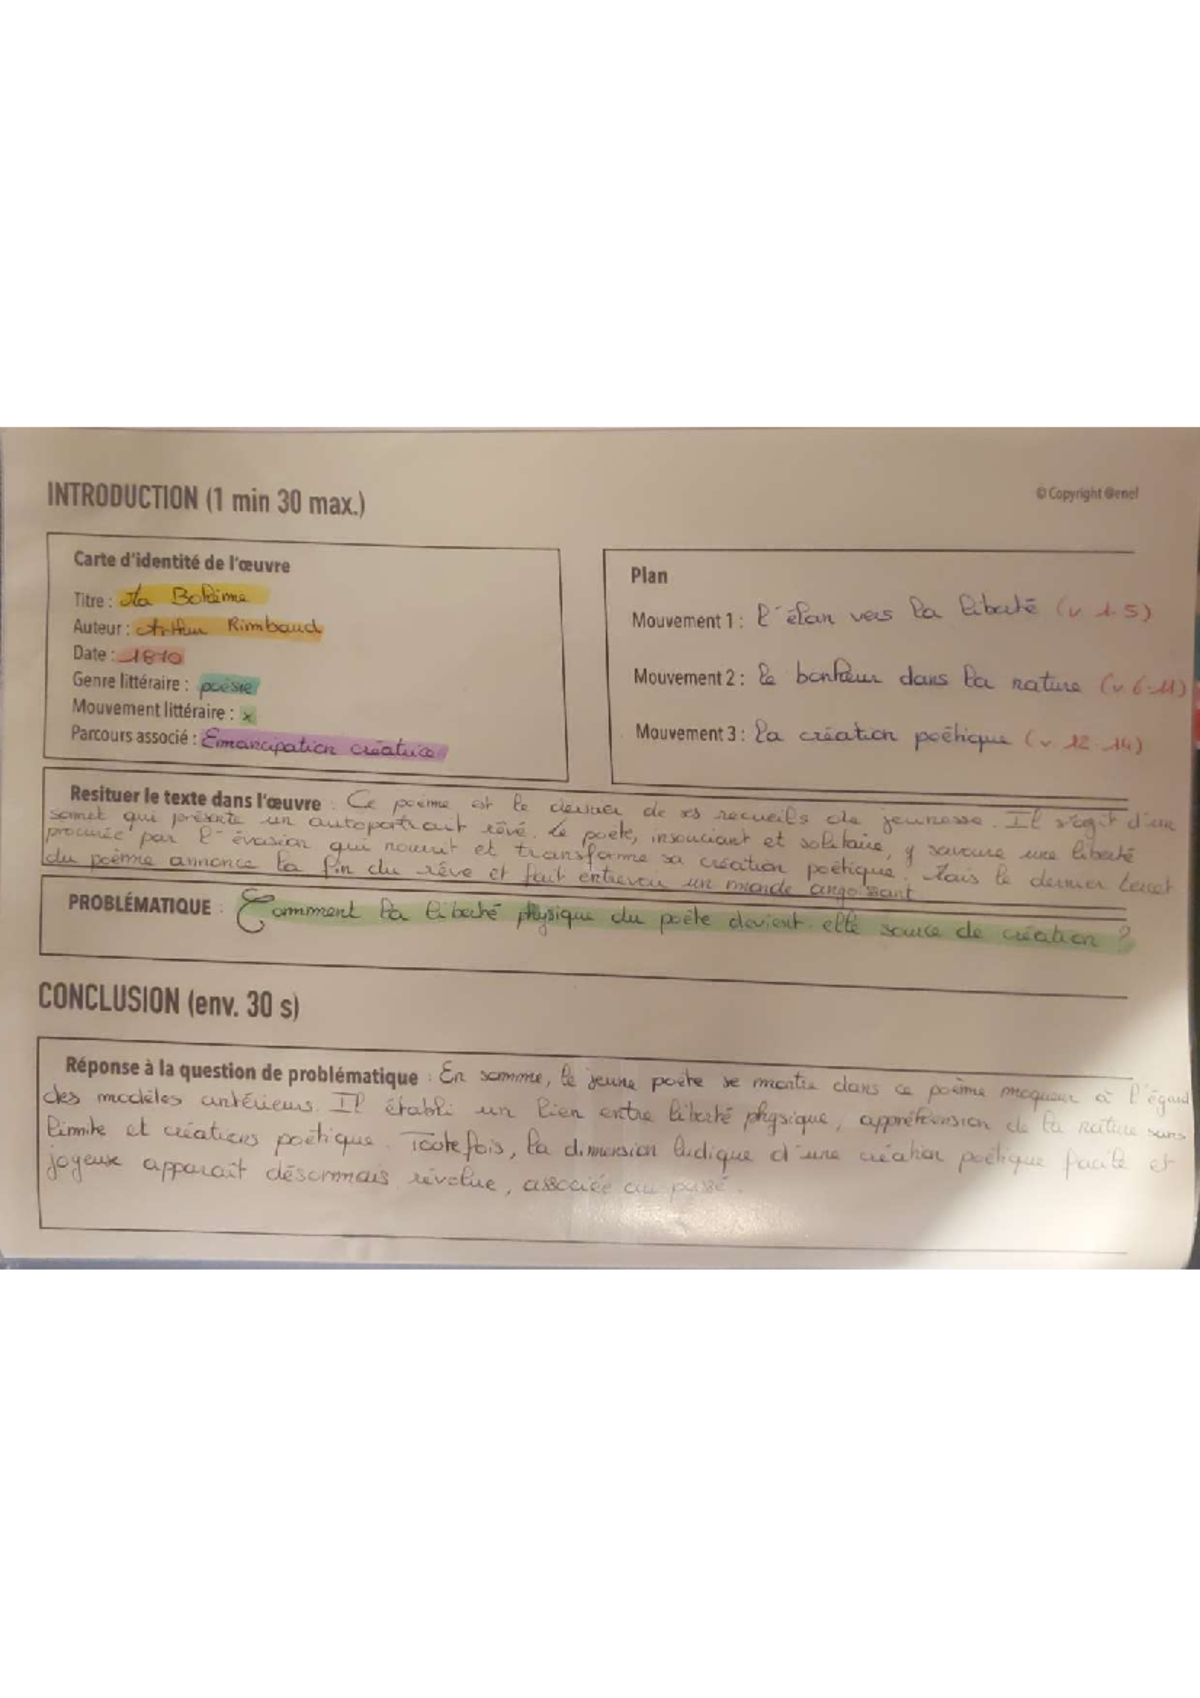 INTRODUCTION (1 min 30 max.)
© Copyright @enel
Carte d'identité de l'œuvre
Titre : Ma Bohème
Auteur : Arthur Rimbaud
Date : 1870
Genre littéraire : poésie
Mouvement littéraire : x
Parcours associé : Emancipation créatrice
Plan
Mouvement 1 : l'élan vers la liberté (v 1-5)
Mouvement 2 : le bonheur dans la nature (v 6-11)
Mouvement 3 : la création poëtique (v. 12-14)
Resituer le texte dans l'œuvre : Ce poème est le dernier de ses recueils de jeunesse. Il s'agit d'un
sonnet qui présente un autoportrait rêvé. Le poète, insouciant et solitaire, y savoure une liberté
procurée par l'évasion qui nourrit et transforme sa création poëtique. Mais le dernier tercet
du poème annonce la fin du rêve et fait entrevoir un monde angoissant
PROBLÉMATIQUE : Comment la liberté physique du poète devient-elle source de création ?
CONCLUSION (env. 30 s)
Réponse à la question de problématique : En somme, le jeune poète se montre dans ce poème moqueur à l'égard
des modèles antérieurs. Il établi un lien entre liberté physique, appréhension de la nature sans
limite et créations poëtique. Toutefois, la dimension ludique d'une création poëtique facile et
joyeuse apparaît désormais révolue, associée au passé.